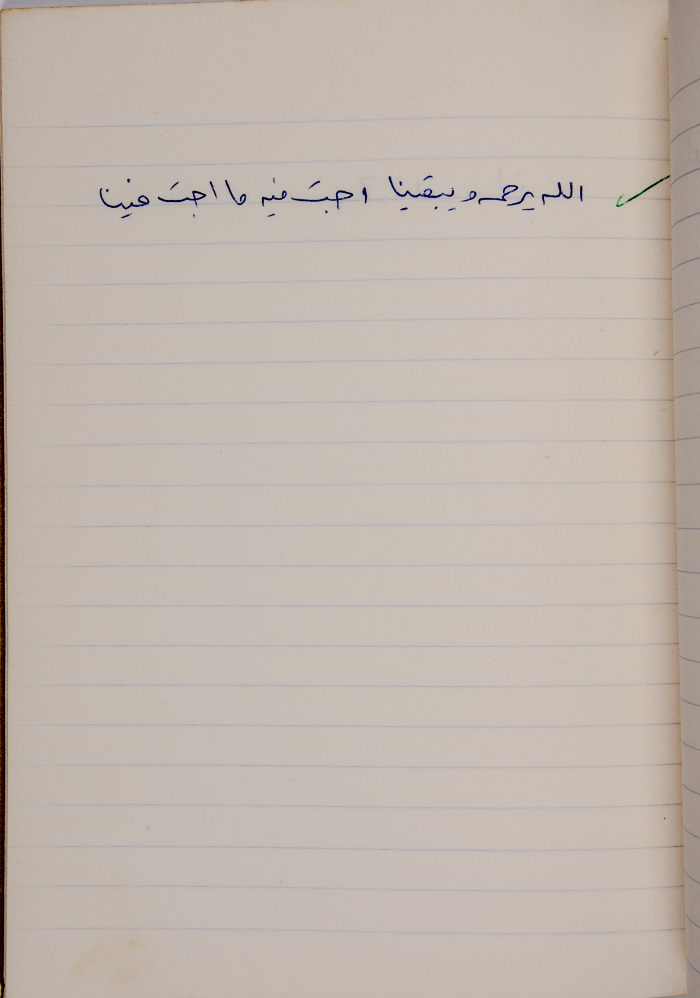 الله يرحمه ويبقينا احبّ فيه ما احبّ فينا